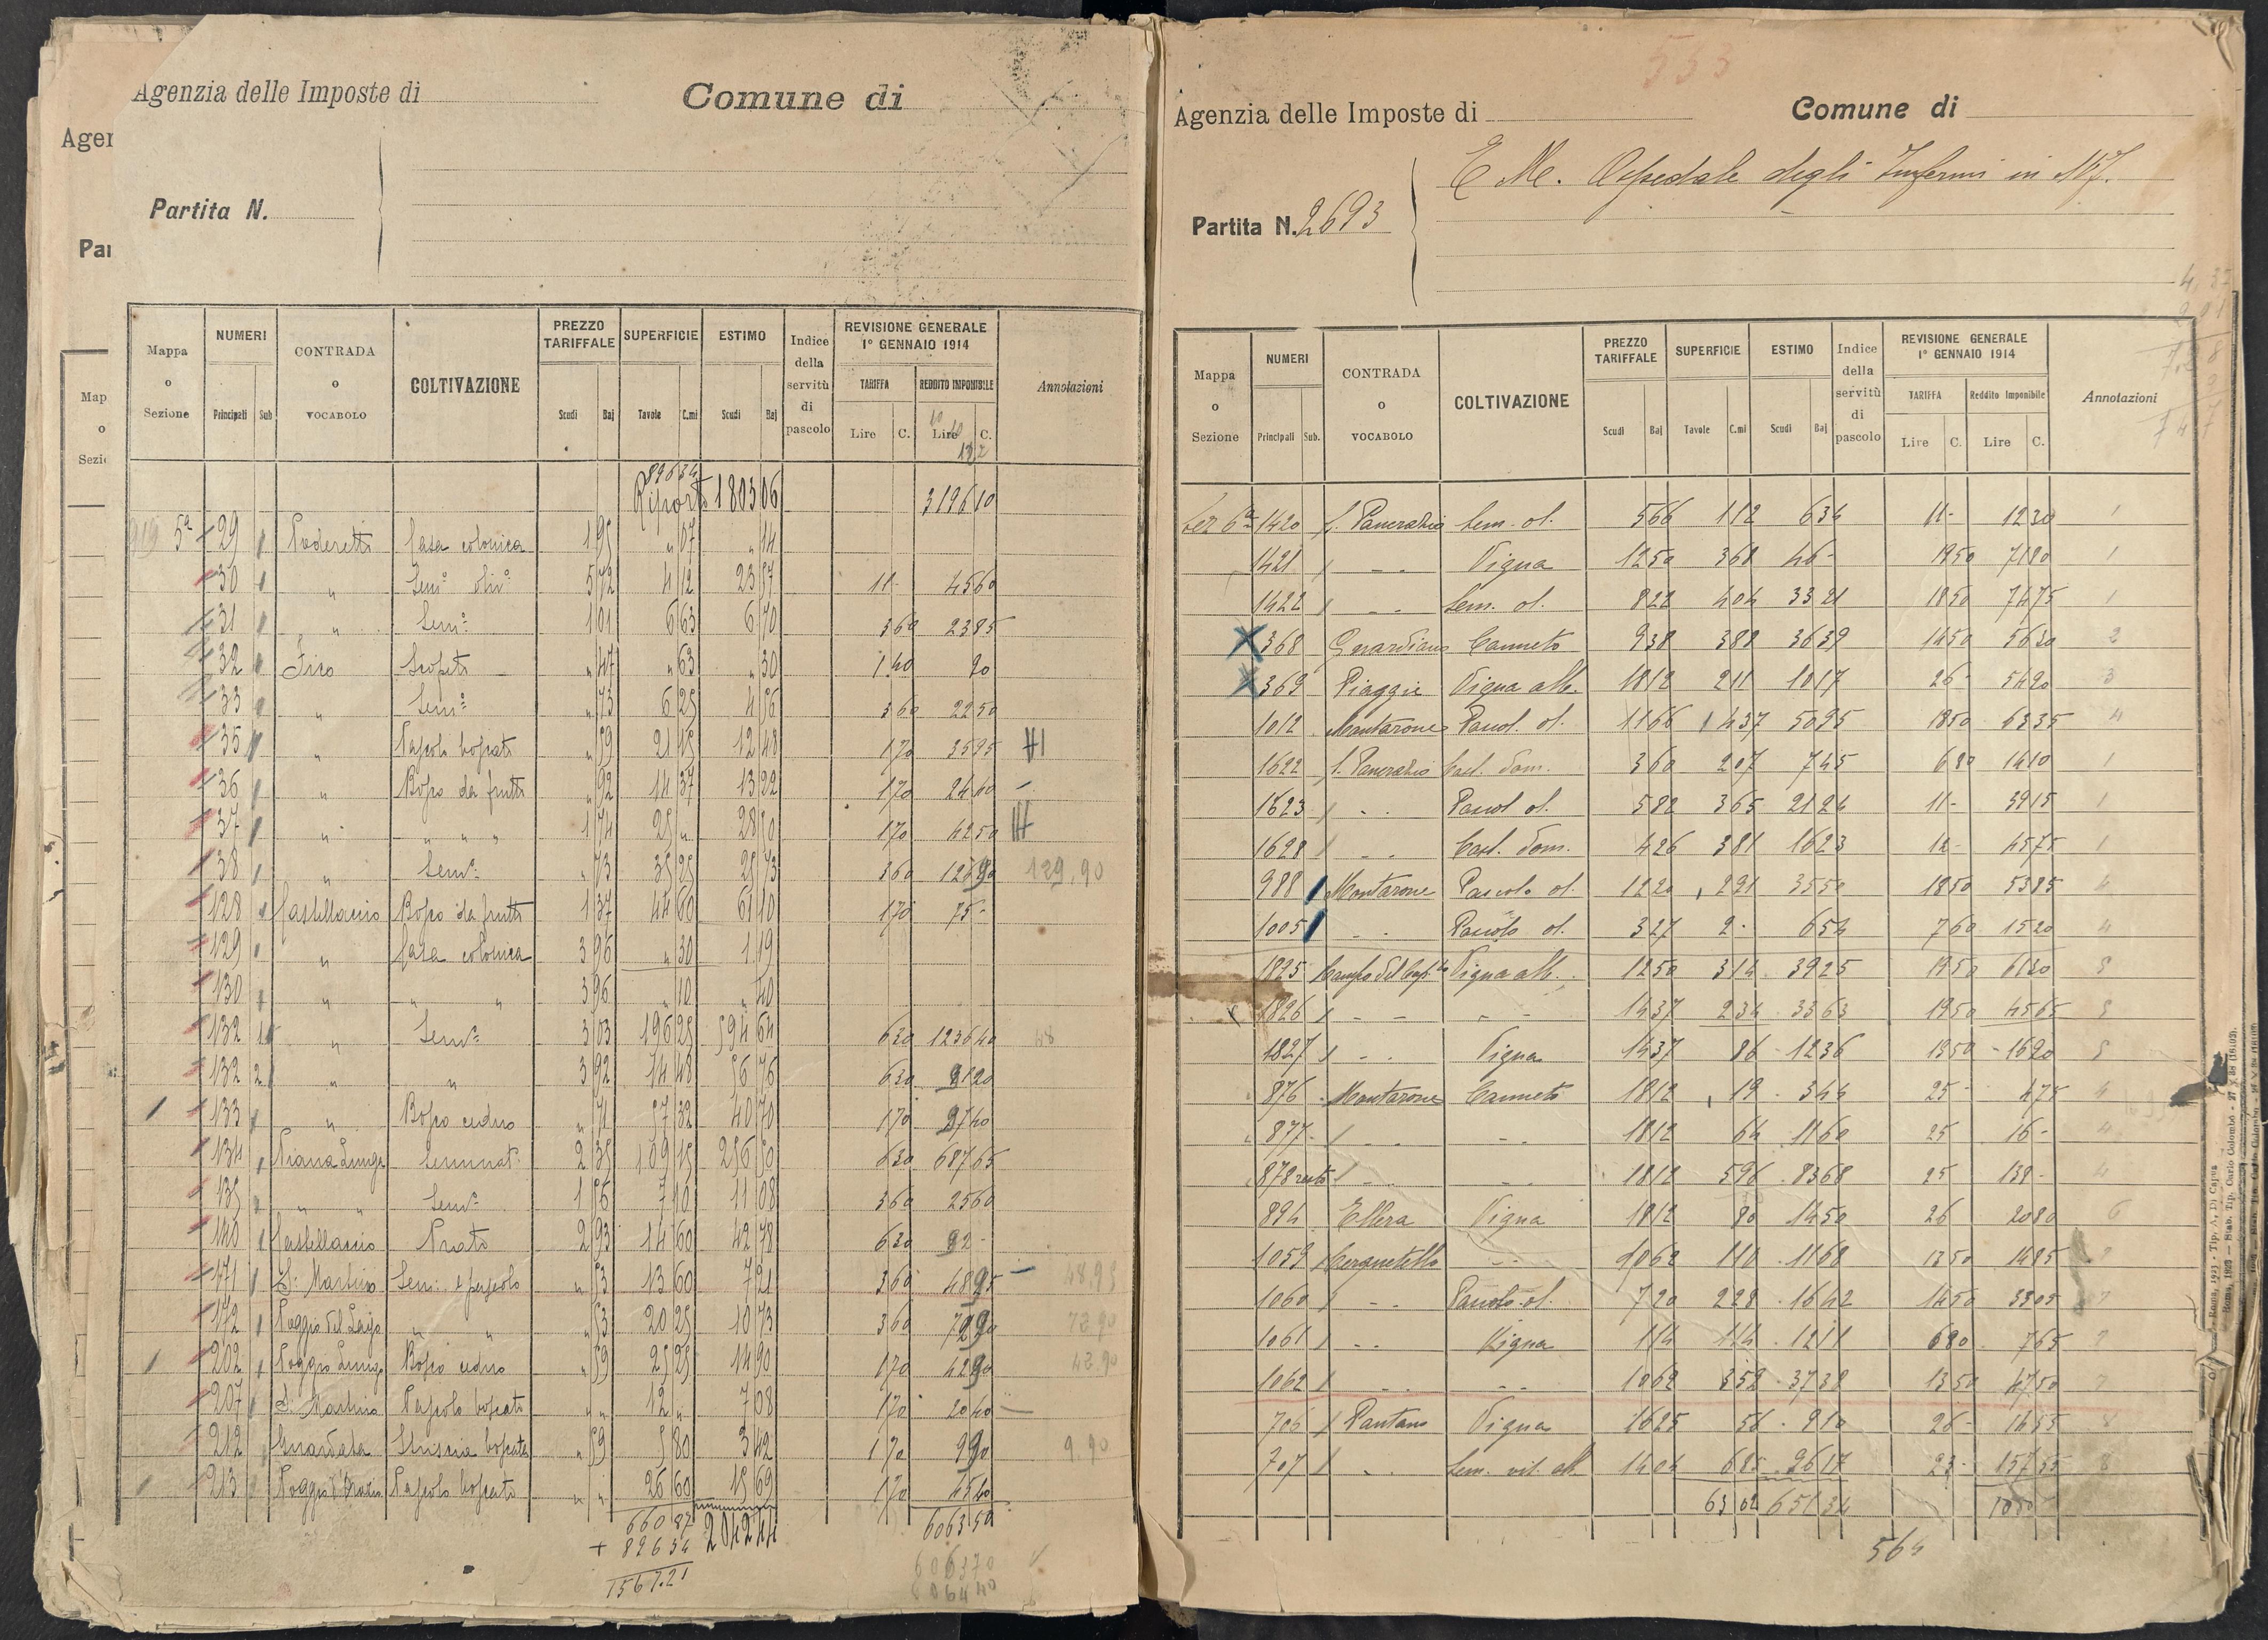 Agenzia delle Imposte di
Comune di
Agen
Partita N.
Par
Mappa o Sezione
NUMERI
Principali Sub
CONTRADA o VOCABOLO
COLTIVAZIONE
PREZZO TARIFFALE
Scudi Baj
SUPERFICIE
Tavole C.mi
ESTIMO
Scudi Baj
Indice della servitù di pascolo
REVISIONE GENERALE 1° GENNAIO 1914
TARIFFA
Lire C.
REDDITO IMPONIBILE
Lire C.
Annotazioni
Map
o
Sezio
89634
Riporto 1803 06 3196 10
919 5ª 29 Poderetti Casa colonica 1 95 " 07 " 14
30 " Sem° oliv° 5 72 4 12 23 57 11- 45 60
31 " Sem° 1 01 6 63 6 70 3 60 23 85
32 Fico Scopeto " 47 " 63 " 30 1 40 20
33 " Sem° " 73 6 25 4 56 3 60 22 50
35 " Pascolo boscato " 59 21 15 12 48 1 70 35 95
36 " Bosco da frutto " 92 14 37 13 22 1 70 24 40
37 " " " " 1 14 25 " 28 50 1 70 42 50
38 " Sem° " 73 35 25 25 73 3 60 126 90 129,90
128 Castellaccio Bosco da frutto 1 37 44 60 61 10 1 70 75 -
129 " Casa colonica 3 96 " 30 1 19
130 " " " 3 96 " 10 " 40
132 1 " Sem° 3 03 196 25 594 64 6 30 1236 40 48
132 2 " " 3 92 14 48 56 76 6 30 91 20
133 " Bosco ceduo " 71 57 32 40 70 1 70 97 40
134 Piana Lunga Seminat° 2 35 109 15 256 50 6 30 687 65
135 " " Sem° 1 56 7 10 11 08 3 60 25 60
140 Castellaccio Prato 2 93 14 60 42 78 6 30 92 -
171 S. Martino Sem. e pascolo " 53 13 60 7 21 3 60 48 95 48,95
172 Poggio del Lago " " " 53 20 25 10 73 3 60 72 90 72 90
202 Poggio Lungo Bosco ceduo " 59 25 25 14 90 1 70 42 90 42,90
207 S. Martino Pascolo boscato " " 12 " 7 08 1 70 20 40
212 Guardata Striscia boscata " 59 5 80 3 42 1 70 9 90 9,90
213 Pascolo boscato " " 26 60 15 69 1 70 45 40
660 87 6063 50
+ 896 34
1567.21
6063 70
6064 40
553
Agenzia delle Imposte di
Comune di
Partita N. 2693
E M. Ospedale degli Infermi in
Mappa o Sezione
NUMERI
Principali Sub.
CONTRADA o VOCABOLO
COLTIVAZIONE
PREZZO TARIFFALE
Scudi Baj
SUPERFICIE
Tavole C.mi
ESTIMO
Scudi Baj
Indice della servitù di pascolo
REVISIONE GENERALE 1° GENNAIO 1914
TARIFFA
Lire C.
Reddito Imponibile
Lire C.
Annotazioni
Sez 6ª 1420 S. Pancrazio Sem. ol. 5 66 1 12 6 34 11- 12 30 1
1421 - - Vigna 12 50 3 68 46 - 19 50 71 80 1
1422 - - Sem. ol. 8 22 4 04 33 21 18 50 74 75 1
X 368 Guardiano Canneto 9 38 3 88 36 39 14 50 56 30 2
X 369 Piaggie Vigna alb. 18 12 2 11 10 17 26 - 54 90 3
1012 Montarone Pascol. ol. 11 66 4 37 50 95 18 50 63 35 4
1622 S. Pancrazio Cast. dom. 3 60 2 07 7 45 6 80 14 10 1
1623 - - Pascol ol. 5 82 3 65 21 24 11- 39 15 1
1628 - - Cast. dom. 4 26 3 81 16 23 12- 45 75 1
988 Montarone Pascolo ol. 12 20 2 91 35 50 18 50 53 85 4
1005 - - Pascolo ol. 3 27 2 - 6 54 7 60 15 20 4
1825 Vigna alb. 12 50 3 14 39 25 19 50 61 20 5
1826 - - - - 14 37 2 34 33 63 19 50 45 65 5
1827 - - Vigna 14 37 86 12 36 19 50 16 90 5
876 Montarone Canneto 18 12 19 3 44 25 - 4 75 4
877 - - - - 18 12 64 11 60 25 16 - 4
878 resto - - - - 18 12 5 96 83 68 25 139 - 4
894 Ellera Vigna 18 12 80 14 50 26 20 80 6
1059 Cerquetello - - 10 62 1 10 11 68 13 50 14 85 7
1060 - - Pascolo ol. 7 20 2 28 16 42 14 50 33 05 7
1061 - - Vigna 1 14 1 14 12 11 6 80 7 65 7
1062 - - - - 10 62 3 52 37 38 13 50 47 50 7
706 Pantano Vigna 16 25 56 9 10 26 - 14 55 8
707 - - Sem. vit. alb. 14 04 6 85 96 17 23 - 157 55 8
63 02 651 34
564